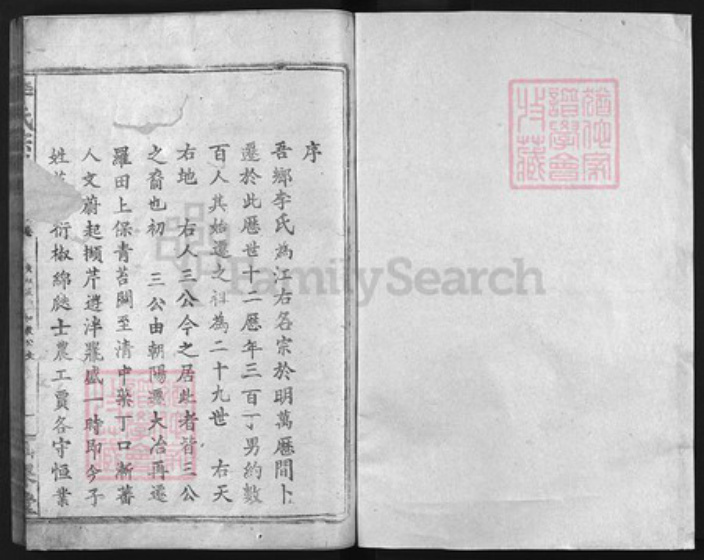 序
吾鄉李氏為江右名宗於明萬厯間卜
遷於此厯世十二厯年三百丁男約數
百人其始遷之祖為二十九世 右天
右地 右人三公今之居此者皆三公
之裔也初 三公由朝陽遷大冶再遷
羅田上保青苔關至清中葉丁口漸蕃
人文蔚起擷芹遊泮羆盛一時即今子
姓 衍椒綿瓞士農工賈各守恒業
FamilySearch
譜學會
收藏